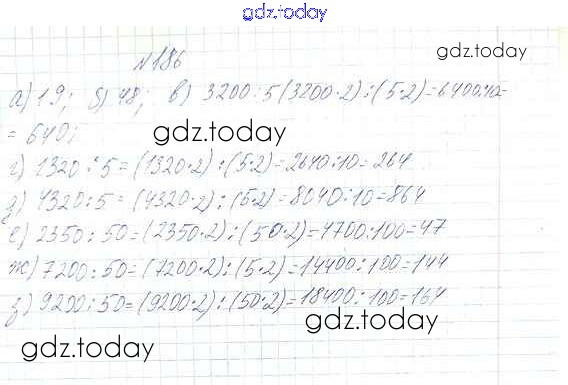 gdz.today
gdz.today
№186
а) 19; б) 48; в) 3200:5(3200·2):(5·2)=6400:10=
= 640;
gdz.today
г) 1320:5=(1320·2):(5·2)=2640:10=264
д) 4320:5=(4320·2):(5·2)=8040:10=864
е) 2350:50=(2350·2):(50·2)=4700:100=47
ж) 7200:50=(7200·2):(5·2)=14400:100=144
з) 9200:50=(9200·2):(50·2)=18400:100=164
gdz.today
gdz.today